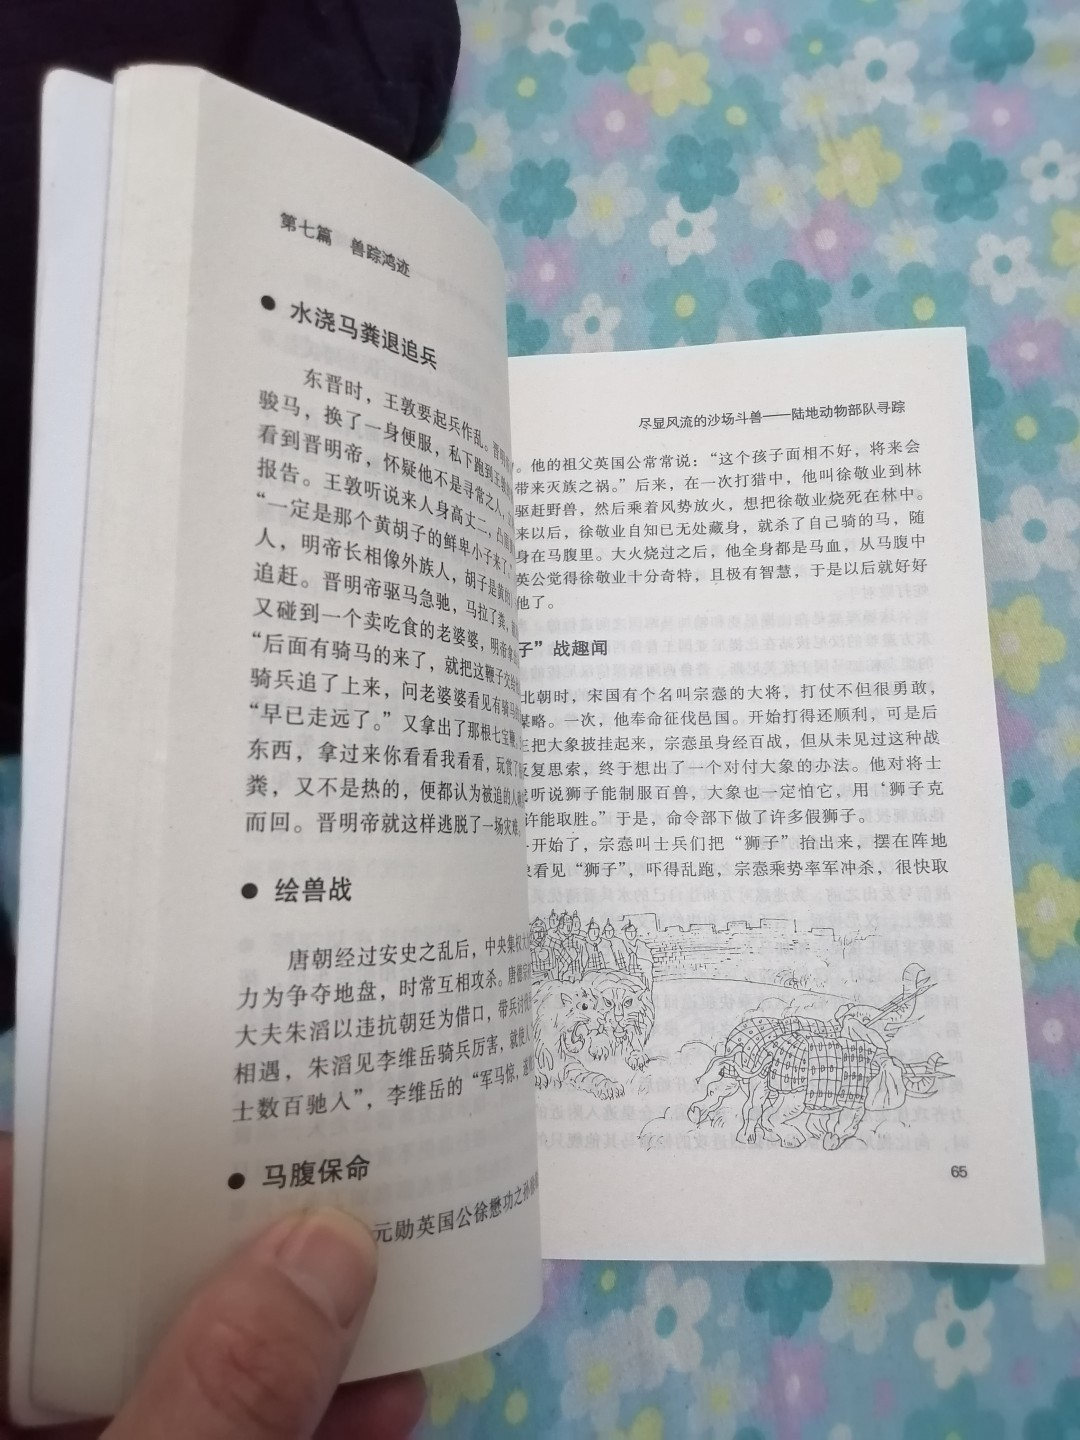 第七篇 兽踪鸿迹
● 水浇马粪退追兵
东晋时，王敦要起兵作乱。晋明
骏马，换了一身便服，私下跑到王
看到晋明帝，怀疑他不是寻常之人，
报告。王敦听说来人身高丈二，凸
“一定是那个黄胡子的鲜卑小子来了。”
人，明帝长相像外族人，胡子是黄的
追赶。晋明帝驱马急驰，马拉了粪，
又碰到一个卖吃食的老婆婆，明帝拿
“后面有骑马的来了，就把这鞭子交给
骑兵追了上来，问老婆婆看见有骑马
“早已走远了。”又拿出了那根七宝鞭
东西，拿过来你看看我看看，玩赏了
粪，又不是热的，便都认为被追的人
而回。晋明帝就这样逃脱了一场灾难。
● 绘兽战
唐朝经过安史之乱后，中央集权
力为争夺地盘，时常互相攻杀。唐德宗
大夫朱滔以违抗朝廷为借口，带兵讨伐
相遇，朱滔见李维岳骑兵厉害，就使人
士数百驰入”，李维岳的“军马惊，遂
● 马腹保命
元勋英国公徐懋功之孙
尽显风流的沙场斗兽——陆地动物部队寻踪
。他的祖父英国公常常说：“这个孩子面相不好，将来会
带来灭族之祸。”后来，在一次打猎中，他叫徐敬业到林
驱赶野兽，然后乘着风势放火，想把徐敬业烧死在林中。
来以后，徐敬业自知已无处藏身，就杀了自己骑的马，随
身在马腹里。大火烧过之后，他全身都是马血，从马腹中
英公觉得徐敬业十分奇特，且极有智慧，于是以后就好好
他了。
子”战趣闻
北朝时，宋国有个名叫宗悫的大将，打仗不但很勇敢，
谋略。一次，他奉命征伐邑国。开始打得还顺利，可是后
王把大象披挂起来，宗悫虽身经百战，但从未见过这种战
反复思索，终于想出了一个对付大象的办法。他对将士
听说狮子能制服百兽，大象也一定怕它，用‘狮子克
许能取胜。”于是，命令部下做了许多假狮子。
开始了，宗悫叫士兵们把“狮子”抬出来，摆在阵地
象看见“狮子”，吓得乱跑，宗悫乘势率军冲杀，很快取
65